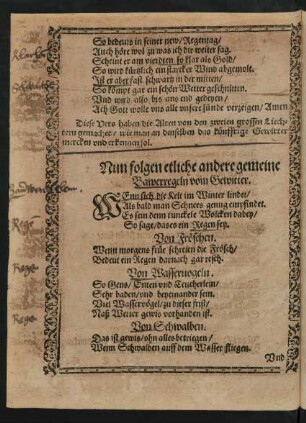 So bedeuts in seiner new/ Regentag/
Auch höre wol zu was ich dir weiter sag.
Scheint er am vierdten so klar als Gold/
So wirt künstlich ein starcker Wind abgemolt.
Ist er aber fast schwartz in der mitten/
So kömpt gar ein schön Wetter geschnitten.
Und wird also bis ans end geheyen/
Ach Gott wolle uns alle unsere sünde verzeigen/ Amen
Diese Vers haben die Alten von den zweien grossen Liech-
tern gemachet/ wie man an denselben das künfftige Gewitter
mercken und erkennen sol.
Nun folgen etliche andere gemeine
Bawerregeln vom Gewitter.
WEnn sich die Kelt im Winter lindet/
Als bald man Schnees genug empfindet.
Es sein denn tunckele Wolcken dabey/
So sage/ das es ein Regen sey.
Von Fröschen.
Wenn morgens früe schreien die Frösch/
Bedeut ein Regen darnach gar resch.
Von Wasservögeln.
So Gens/ Enten und Teucherlein/
Sehr baden/ und beyeinander sein.
Viel Wasservögel/ zu dieser frist/
Naß Wetter gewis vorhanden ist.
Von Schwalben.
Das ist gewis/ ohn alles betriegen/
Wenn Schwalben auff dem Wasser fliegen.
Und
Rege
Rege